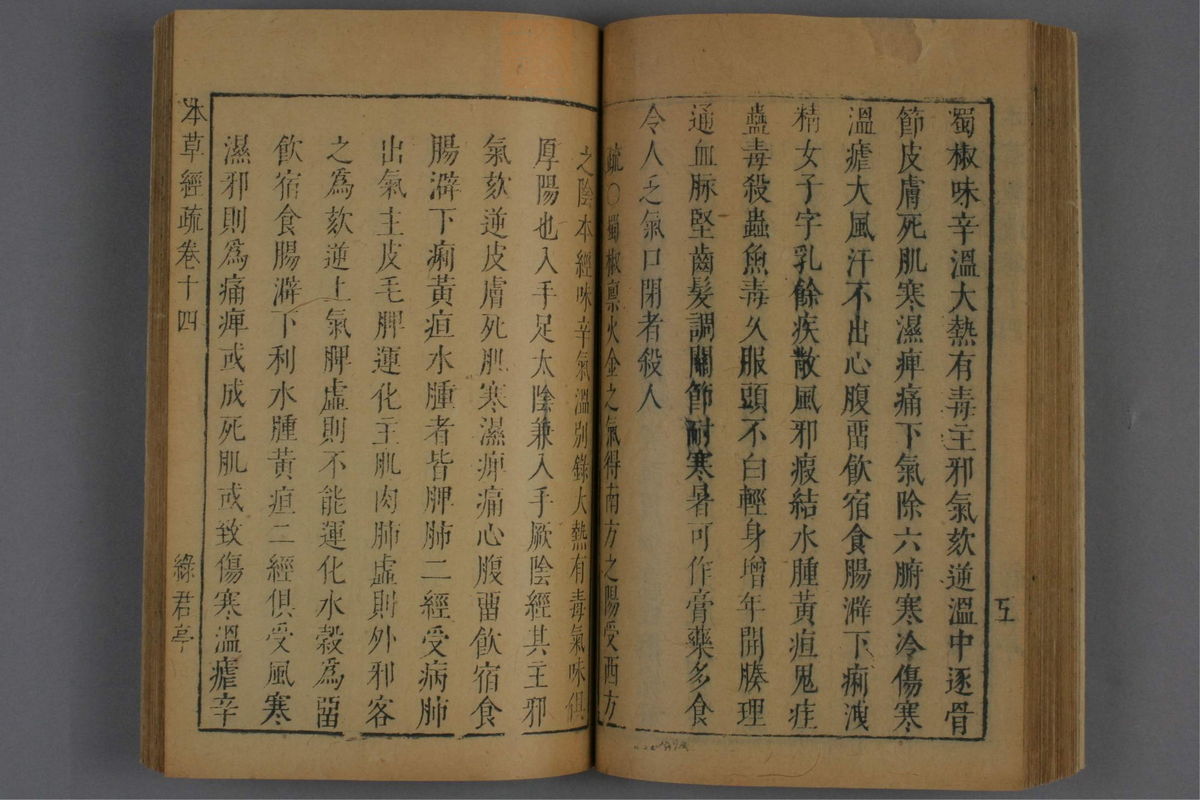 蜀椒味辛溫大熱有毒主邪氣欬逆溫中逐骨
節皮膚死肌寒濕痺痛下氣除六腑寒冷傷寒
溫瘧大風汗不出心腹畱飲宿食腸澼下痢洩
精女子字乳餘疾散風邪瘕結水腫黃疸鬼疰
蠱毒殺蟲魚毒久服頭不白輕身增年開腠理
通血脉堅齒髮調關節耐寒暑可作膏藥多食
令人乏氣口閉者殺人
疏○蜀椒禀火金之氣得南方之陽受西方
之陰本經味辛氣溫別錄大熱有毒氣味俱
厚陽也入手足太陰兼入手厥陰經其主邪
氣欬逆皮膚死肌寒濕痺痛心腹畱飲宿食
腸澼下痢黃疸水腫者皆脾肺二經受病肺
出氣主皮毛脾運化主肌肉肺虛則外邪客
之為欬逆上氣脾虛則不能運化水穀為畱
飲宿食腸澼下利水腫黃疸二經俱受風寒
濕邪則為痛痺或成死肌或致傷寒溫瘧辛
本草經疏卷十四
綠君亭